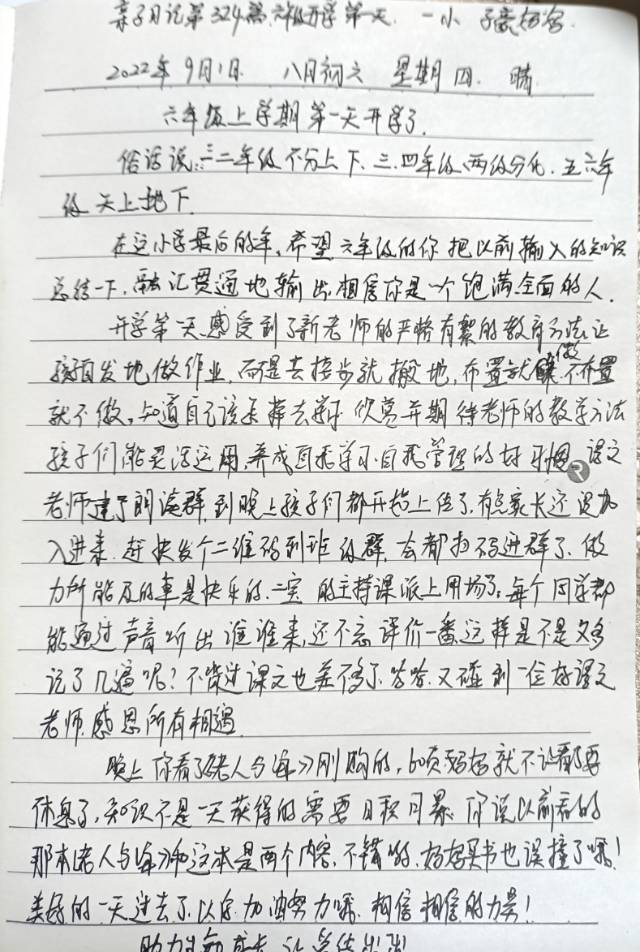 亲子日记第324篇 六级开学第一天. 一小 子豪妈妈.
2022年9月1日 八月初六 星期四. 晴.
六年级上学期第一天开学了.
俗话说:一二年级不分上下.三.四年级.两级分化.五六年
级天上地下.
在这小学最后的年.希望六年级的你把以前输入的知识
总结一下.融汇贯通地输出.相信你是一个饱满全面的人.
开学第一天.感受到了新老师的严格有絮的教育方法.让
孩子自发地做作业.而不是去按步就搬地,布置就做不布置
就不做,知道自己该怎样去学习.欣赏并期待老师的教学方法
孩子们能灵活运用.养成自我学习.自我管理的好习惯.语文
老师建了朗读群.到晚上孩子们都开始上传了.有些家长还没加
入进来.赶快发个二维码到班级群.会都扫码进群了.做
力所能及的事是快乐的.二实的主持课派上用场了.每个同学都
能通过声音听出谁谁来,还不忘评价一番.这样是不是又多
读了几遍呢?不背过课文也差不多了.哈哈.又碰到一位好语文
老师.感恩所有相遇.
晚上你看了《老人与海》刚购的,60页.妈妈就不让看了.要
休息了,知识不是一天获得的需要日积月累.你说以前看的
那本《老人与海》和这本是两个内容.不错哟.妈妈买书也误撞了呢!
美好的一天过去了.以后加油努力哦.相信相信的力量!
助力生命成长 让